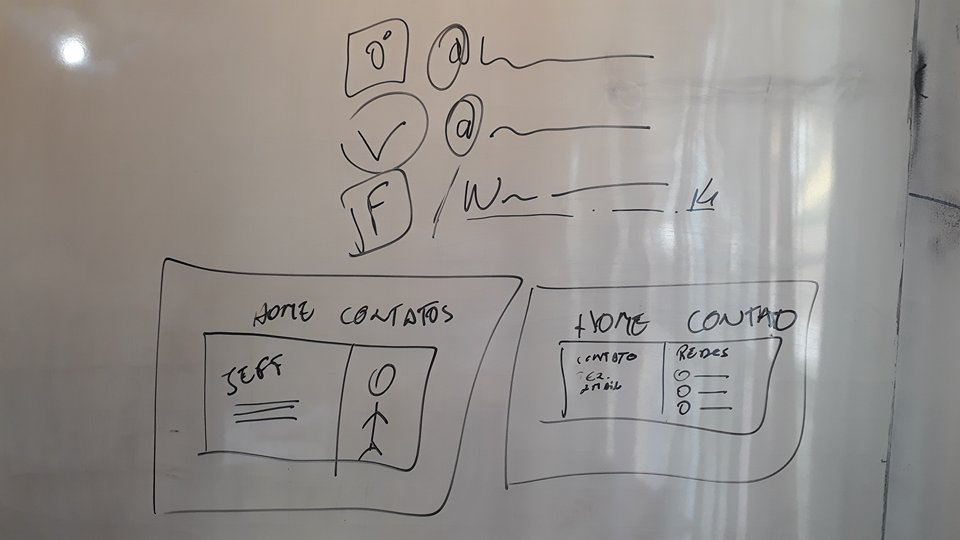 @
@
F / W
HOME CONTATOS
JEFF
HOME CONTATO
CONTATO
TEL.
EMAIL
REDES